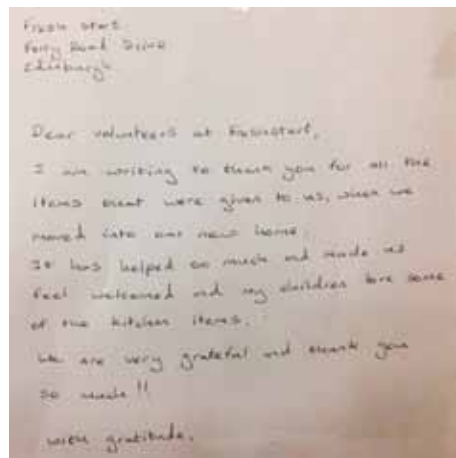 Fresh Start
Ferry Road Drive
Edinburgh
Dear volunteers at Freshstart,
I am writing to thank you for all the
items that were given to us, when we
moved into our new home.
It has helped so much and made us
feel welcomed and my children love some
of the kitchen items.
We are very grateful and thank you
so much!!
With gratitude,